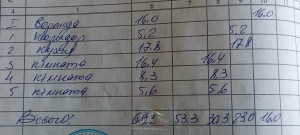 1 2 3 4 5 6 7 8 9 10
16.0
I Веранда 16.0
1 Коридор 5,2 5,2
2 Кухня 17.8 17.8
3 кімната 16,4 16,4
4 кімната 8,3 8.3
5 кімната 5,6 5,6
Всього! 69,3 53.3 30.3 23.0 16.0